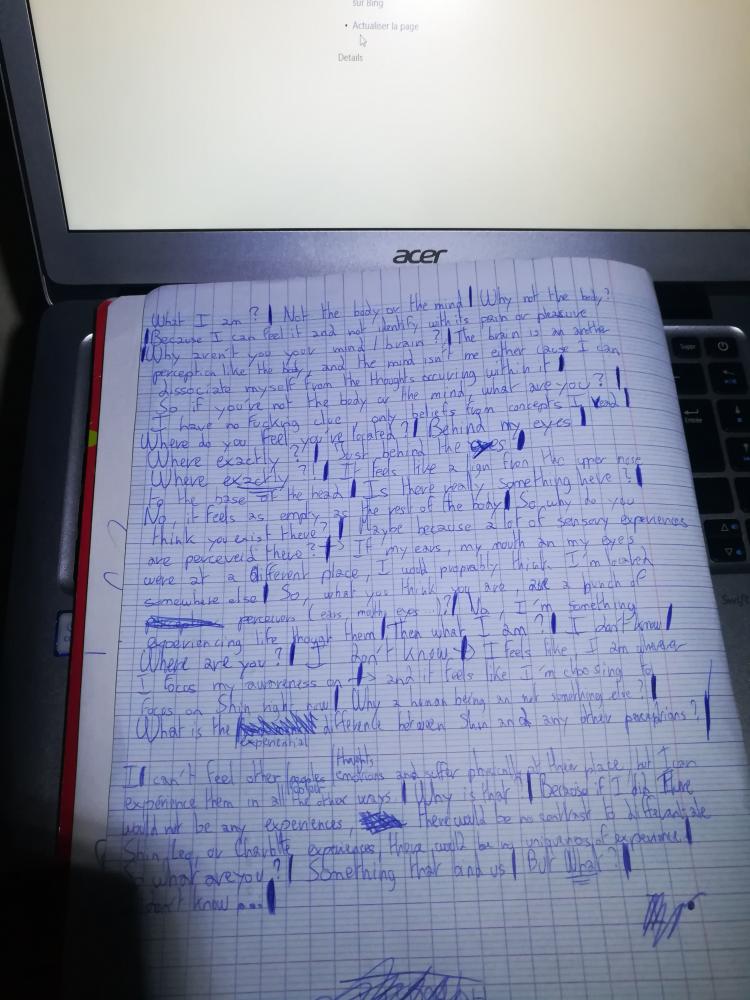 sur Bing
• Actualiser la page
Details
acer
What I am ? | Not the body or the mind | Why not the body?
| Because I can feel it and not identify with its pain or pleasure
| Why aren't you your mind / brain ? | The brain is an another
perception like the body, and the mind isn't me either cause I can
dissociate myself from the thoughts occuring within it |
So if you're not the body or the mind, what are you ? |
I have no fucking clue, only beliefs from concepts I read |
Where do you feel you're located ? | Behind my eyes |
Where exactly ? | Just behind the eyes |
Where exactly ?! | It feels like a lign from the upper nose
to the base of the head | Is there really something here ? |
No, it feels as empty as the rest of the body | So why do you
think you exist there ? | Maybe because a lot of sensory experiences
are perceveid there ? | -> If my ears, my mouth an my eyes
were at a different place, I would proprably think I'm located
somewhere else | So, what you think you are, are a bunch of
perceivers (ears, mouth, eyes ...) ? | No, I'm something
experiencing life though them | Then what I am ? | I don't know |
Where are you ? | I don't know -> I feels like, I am whatever
I focus my awareness on | -> and it feels like I'm choosing to
focus on Shin right now | Why a human being an not something else ? |
What is the experiential difference between Shin and any other perceptions ? |
I can't feel other peoples thoughts emotions and suffer physically at their place but I can
experience them in all the other ways | Why is that ? | Because if I did there
would not be any experiences, there would be no contrast to differantiate
Shin, Leo, or Charlotte experiences, there would be no uniqueness of experience |
So what are you ? | Something that bind us | But What ? |
I don't know ... |
Suppr
Entrée
Swift